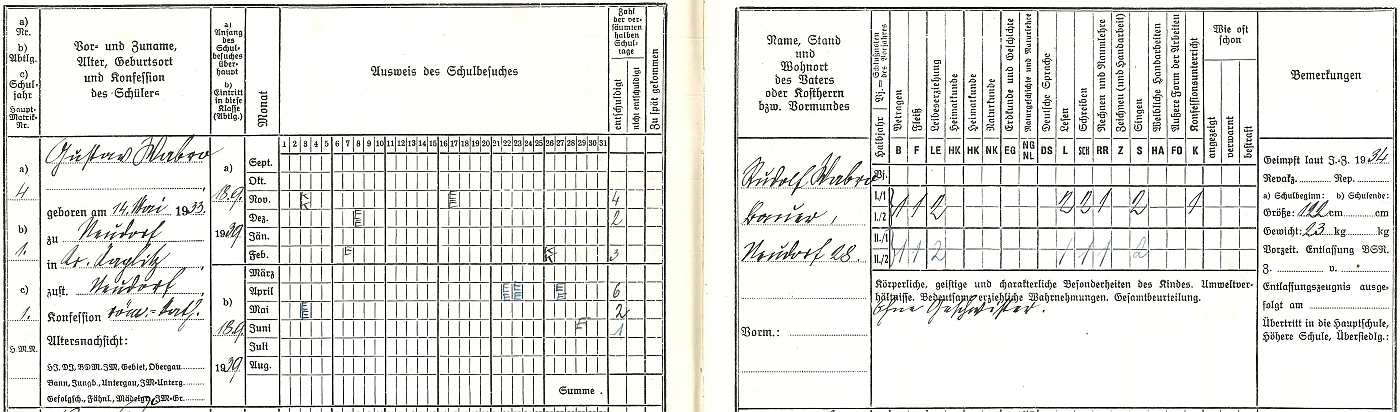 a)
Nr.
b)
Abtlg.
c)
Schul-
jahr
Haupt-
Matrik-
Nr.
Vor- und Zuname,
Alter, Geburtsort
und Konfession
des Schülers
a)
Anfang
des
Schul-
besuches
über-
haupt
b)
Eintritt
in diese
Klasse
(Abtlg.)
Monat
Ausweis des Schulbesuches
Zahl
der ver-
säumten
halben
Schul-
tage
entschuldigt
nicht entschuldigt
Zu spät gekommen
1 2 3 4 5 6 7 8 9 10 11 12 13 14 15 16 17 18 19 20 21 22 23 24 25 26 27 28 29 30 31
a)
4
b)
1.
c)
1.
H.M.N.
Gustav Wabro
geboren am 14. Mai 1933.
zu Neudorf
in Kr. Kaplitz
zust. Neudorf
Konfession röm.-kath.
Altersnachsicht:
HJ, DJ, BDM, JM, Gebiet, Obergau
Bann, Jungb., Untergau, JM-Unterg.
Gefolgsch., Fähnl., Mädelgr., JM-Gr.
a)
18.9.
1939
b)
18.9.
1939.
Sept.
Okt.
Nov. 4
Dez. 2
Jän.
Feb. 3
März
April 6
Mai 2
Juni 1
Juli
Aug.
Summe .
Name, Stand
und
Wohnort
des Vaters
oder Kostherrn
bzw. Vormundes
Halbjahr
Vj. = Schlußnoten des Vorjahres
Betragen
Fleiß
Leibeserziehung
Heimatkunde
Heimatkunde
Naturkunde
Erdkunde und Geschichte
Naturgeschichte und Naturlehre
Deutsche Sprache
Lesen
Schreiben
Rechnen und Raumlehre
Zeichnen (und Handarbeit)
Singen
Weibliche Handarbeiten
Äußere Form der Arbeiten
Konfessionsunterricht
Wie oft
schon
angezeigt
verwarnt
bestraft
Bemerkungen
B F LE HK HK NK EG NG NL DS L SCH RR Z S HA FO K
Rudolf Wabro
Bauer,
Neudorf 28.
Vorm.:
Vj.
I./1
I./2
1 1 2 2 2 1 2 1
II./1
II./2
1 1 2 1 1 1 2
Körperliche, geistige und charakterliche Besonderheiten des Kindes. Umweltver-
hältnisse. Bedeutsame erziehliche Wahrnehmungen. Gesamtbeurteilung.
ohne Geschwister.
Geimpft laut J.-Z. 1934
Revakz. Rep.
a) Schulbeginn: b) Schulende:
Größe: 122 cm cm
Gewicht: 23 kg kg
Vorzeit. Entlassung BSR.
Z. v.
Entlassungszeugnis ausge-
folgt am
Übertritt in die Hauptschule,
Höhere Schule, Übersiedlg.: